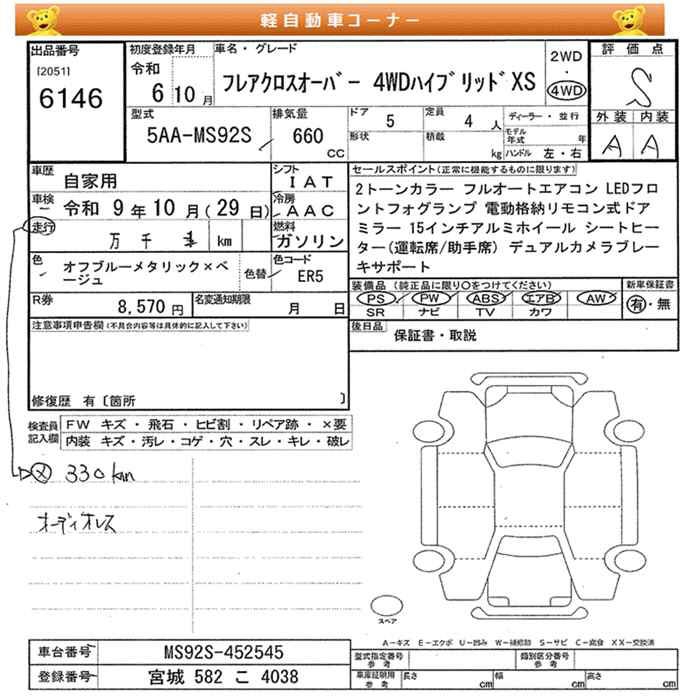 軽自動車コーナー
出品番号
[2051]
6146
初度登録年月
令和
6 10 月
車名・グレード
フレアクロスオーバー 4WDハイブリッドXS
2WD
・
4WD
評価点
S
外装 内装
A A
型式
5AA-MS92S
排気量
660
CC
ドア 5
形状
定員 4 人
積載 kg
ディーラー・並行
モデル年式 年
ハンドル 左・右
車歴 自家用
シフト IAT
車検 令和 9年 10月(29日)
冷房 AAC
走行 万 千 km
燃料 ガソリン
色 オフブルーメタリック×ベージュ
色替
色コード ER5
R券 8,570円
名変通知期限 月 日
セールスポイント(正常に機能するものに限ります)
2トーンカラー フルオートエアコン LEDフロ
ントフォグランプ 電動格納リモコン式ドア
ミラー 15インチアルミホイール シートヒー
ター(運転席/助手席) デュアルカメラブレー
キサポート
装備品(純正品に限り〇をつけてください)
新車保証書
PS PW ABS エアB AW
SR ナビ TV カワ
有・無
後日品 保証書・取説
注意事項申告欄(不具合内容等は具体的に記入して下さい)
修復歴 有〔箇所 〕
検査員記入欄
FW キズ・飛石・ヒビ割・リペア跡・×要
内装 キズ・汚レ・コゲ・穴・スレ・キレ・破レ
メ 330km
オーディオレス
スペア
A-キズ E-エクボ U-凹み W-補修跡 S-サビ C-腐食 XX-交換済
車台番号 MS92S-452545
登録番号 宮城 582 こ 4038
型式指定番号 参考
類別区分番号 参考
車庫証明用 参考
長さ cm
幅 cm
高さ cm